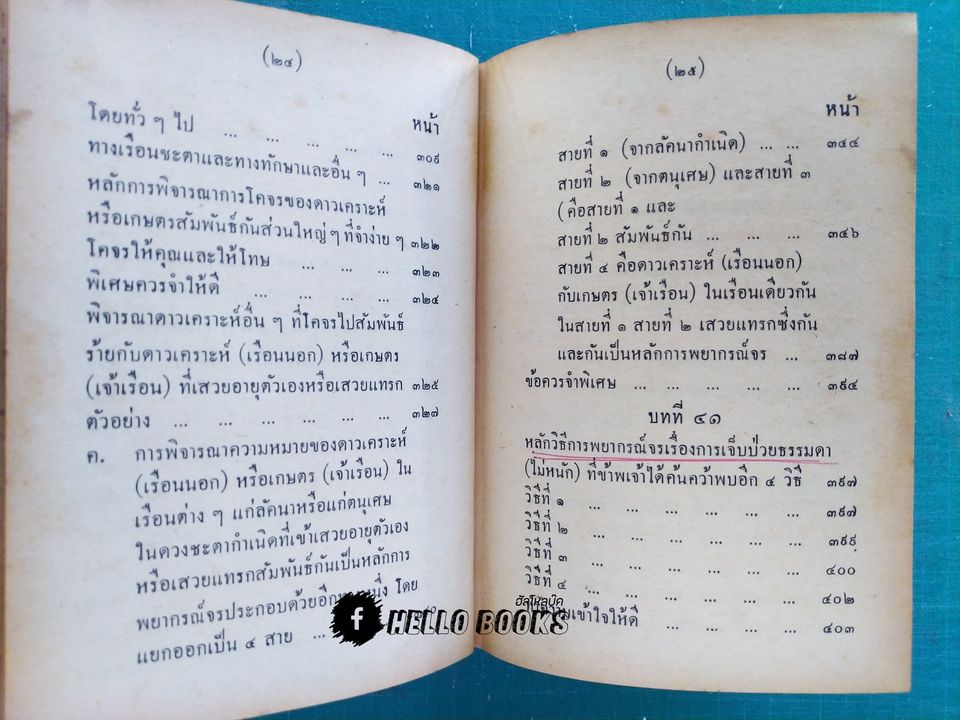 (๒๔)
หน้า
โดยทั่ว ๆ ไป ... ... ... ... ... ๓๐๙
ทางเรือนชะตาและทางทักษาและอื่น ๆ ... ๓๒๑
หลักการพิจารณาการโคจรของดาวเคราะห์
หรือเกษตรสัมพันธ์กันส่วนใหญ่ ๆ ที่จำง่าย ๆ ๓๒๒
โคจรให้คุณและให้โทษ ... ... ... ๓๒๓
พิเศษควรจำให้ดี ... ... ... ... ๓๒๔
พิจารณาดาวเคราะห์อื่น ๆ ที่โคจรไปสัมพันธ์
ร้ายกับดาวเคราะห์ (เรือนนอก) หรือเกษตร
(เจ้าเรือน) ที่เสวยอายุตัวเองหรือเสวยแทรก ๓๒๕
ตัวอย่าง ... ... ... ... ... ... ๓๒๗
ค. การพิจารณาความหมายของดาวเคราะห์
(เรือนนอก) หรือเกษตร (เจ้าเรือน) ใน
เรือนต่าง ๆ แก่ลัคนาหรือแก่ตนุเศษ
ในดวงชะตากำเนิดที่เข้าเสวยอายุตัวเอง
หรือเสวยแทรกสัมพันธ์กันเป็นหลักการ
พยากรณ์จรประกอบด้วยอีก โดย
แยกออกเป็น ๔ สาย ...
(๒๕)
หน้า
สายที่ ๑ (จากลัคนากำเนิด) ... ... ๓๔๔
สายที่ ๒ (จากตนุเศษ) และสายที่ ๓
(คือสายที่ ๑ และ
สายที่ ๒ สัมพันธ์กัน ... ... ... ๓๔๖
สายที่ ๔ คือดาวเคราะห์ (เรือนนอก)
กับเกษตร (เจ้าเรือน) ในเรือนเดียวกัน
ในสายที่ ๑ สายที่ ๒ เสวยแทรกซึ่งกัน
และกันเป็นหลักการพยากรณ์จร ... ๓๘๗
ข้อควรจำพิเศษ ... ... ... ... ... ๓๙๔
บทที่ ๔๑
หลักวิธีการพยากรณ์จรเรื่องการเจ็บป่วยธรรมดา
(ไม่หนัก) ที่ข้าพเจ้าได้ค้นคว้าพบอีก ๔ วิธี ๓๙๗
วิธีที่ ๑ ... ... ... ... ... ... ๓๙๗
วิธีที่ ๒ ... ... ... ... ... ... ๓๙๙
วิธีที่ ๓ ... ... ... ... ... ... ๔๐๐
วิธีที่ ๔ ... ... ... ... ... ... ๔๐๒
เข้าใจให้ดี ... ... ... ... ๔๐๓
ฮัลโหลบุ๊ค
f HELLO BOOKS